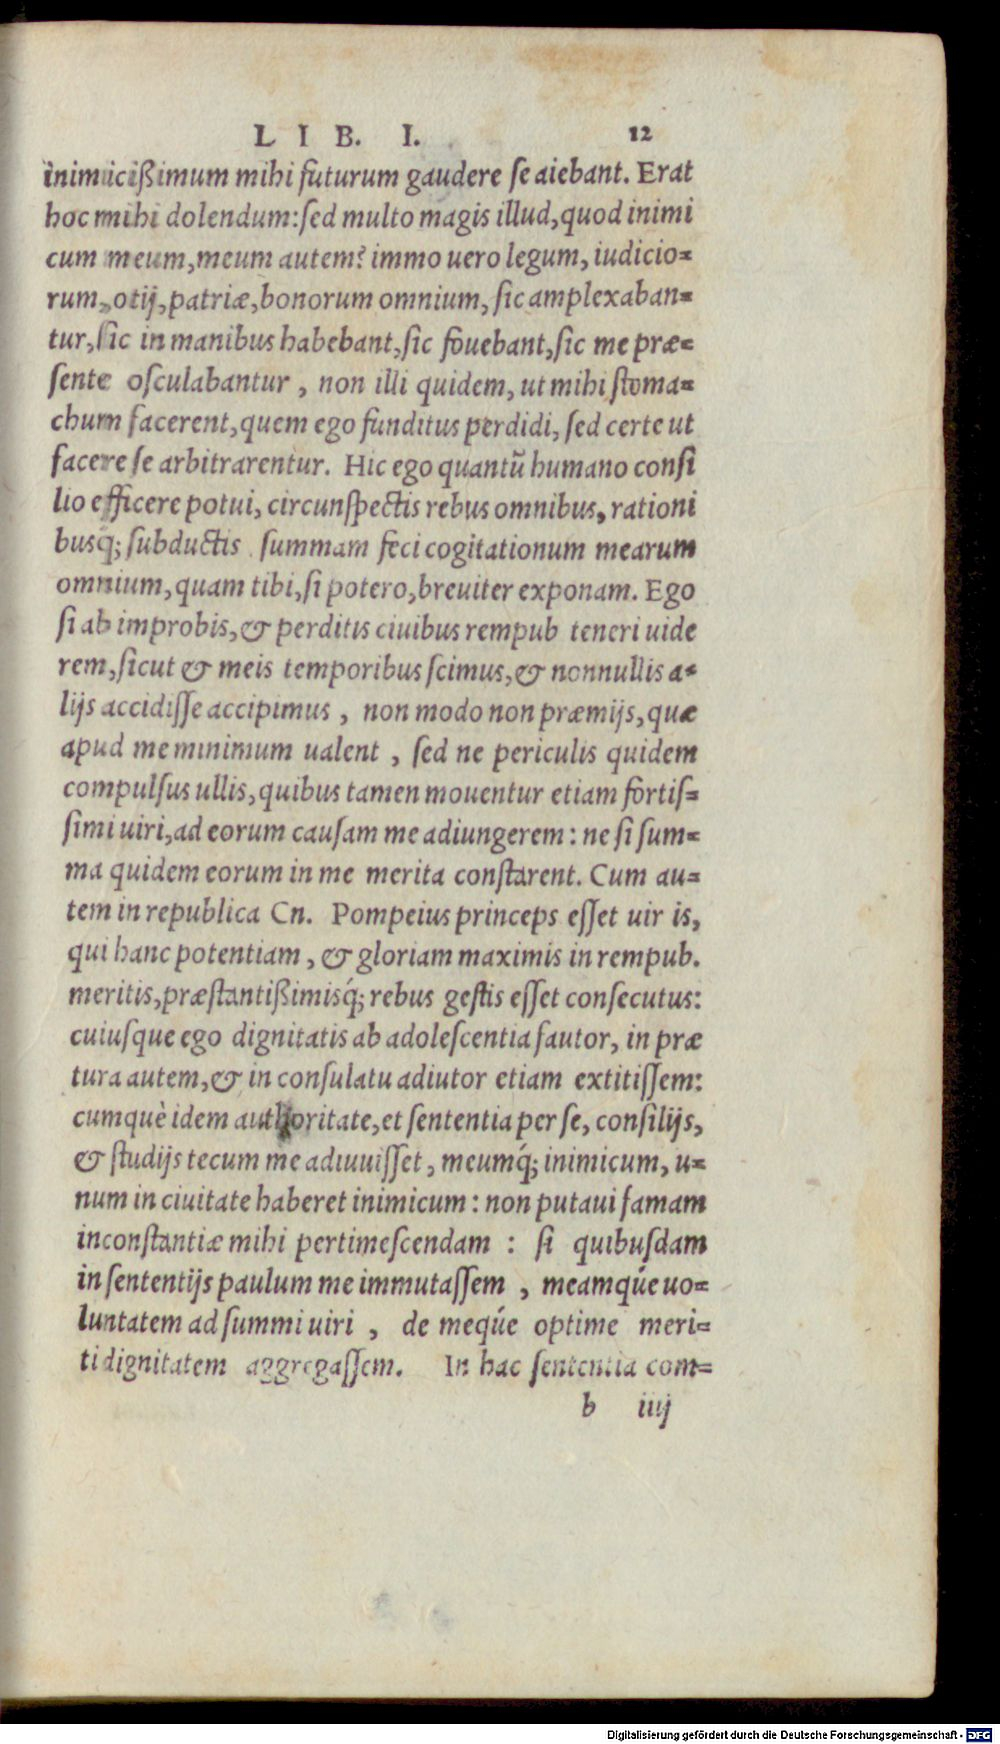 LIB. I. 12
inimicißimum mihi futurum gaudere se aiebant. Erat
hoc mihi dolendum: sed multo magis illud, quod inimi
cum meum, meum autem? immo uero legum, iudicio-
rum, otij, patriæ, bonorum omnium, sic amplexaban-
tur, sic in manibus habebant, sic fouebant, sic me præ-
sente osculabantur, non illi quidem, ut mihi stoma-
chum facerent, quem ego funditus perdidi, sed certe ut
facere se arbitrarentur. Hic ego quantū humano consi
lio efficere potui, circunspectis rebus omnibus, rationi
busq́; subductis summam feci cogitationum mearum
omnium, quam tibi, si potero, breuiter exponam. Ego
si ab improbis, & perditis ciuibus rempub teneri uide
rem, sicut & meis temporibus scimus, & nonnullis a-
lijs accidisse accipimus, non modo non præmijs, quæ
apud me minimum ualent, sed ne periculis quidem
compulsus ullis, quibus tamen mouentur etiam fortis-
simi uiri, ad eorum causam me adiungerem: ne si sum-
ma quidem eorum in me merita constarent. Cum au-
tem in republica Cn. Pompeius princeps esset uir is,
qui hanc potentiam, & gloriam maximis in rempub.
meritis, præstantißimisq́; rebus gestis esset consecutus:
cuiusque ego dignitatis ab adolescentia fautor, in præ
tura autem, & in consulatu adiutor etiam extitissem:
cumquè idem authoritate, et sententia per se, consilijs,
& studijs tecum me adiuuisset, meumq́; inimicum, u-
num in ciuitate haberet inimicum: non putaui famam
inconstantiæ mihi pertimescendam: si quibusdam
in sententijs paulum me immutassem, meamqúe uo-
luntatem ad summi uiri, de meqúe optime meri-
ti dignitatem aggregassem. In hac sententia com-
b iiij
Digitalisierung gefördert durch die Deutsche Forschungsgemeinschaft - DFG